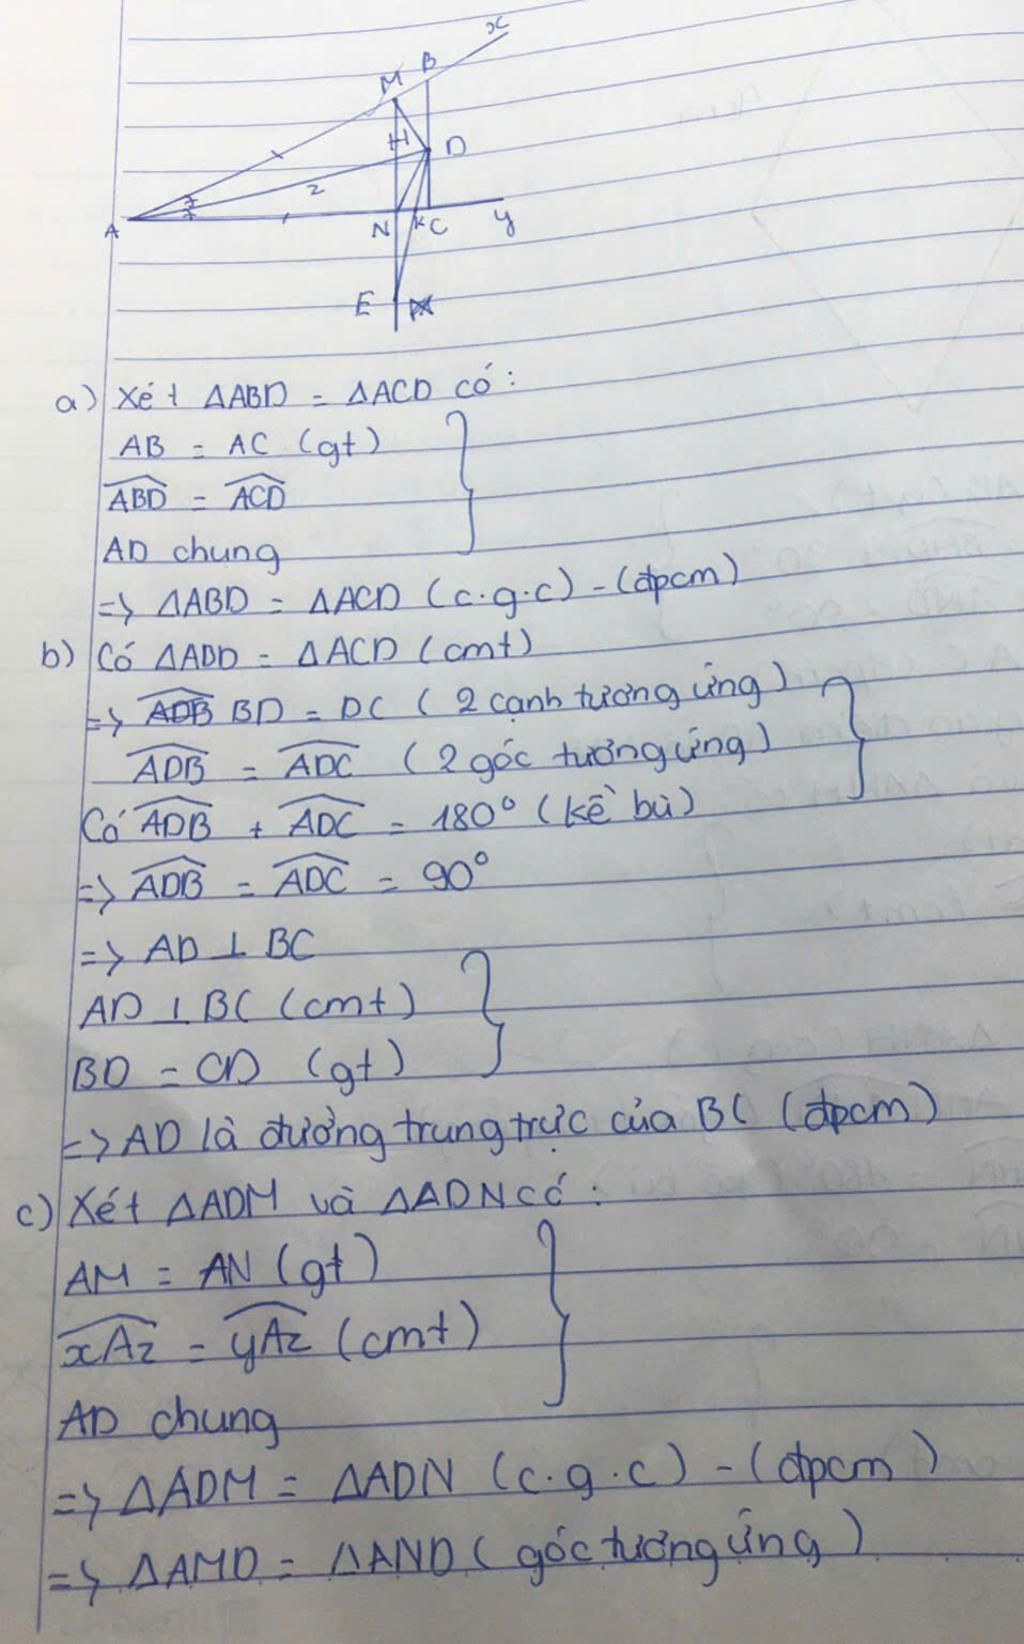 x
M B
H D
2
A N K C y
E
a) Xét ΔABD = ΔACD có:
AB = AC (gt)
ABD̂ = ACD̂
AD chung
=> ΔABD = ΔACD (c.g.c) - (đpcm)
b) Có ΔABD = ΔACD (cmt)
=> BD = DC ( 2 cạnh tương ứng )
ADB̂ = ADĈ ( 2 góc tương ứng )
Có ADB̂ + ADĈ = 180° (kề bù)
=> ADB̂ = ADĈ = 90°
=> AD ⊥ BC
AD ⊥ BC (cmt)
BD = CD (gt)
=> AD là đường trung trực của BC (đpcm)
c) Xét ΔADM và ΔADN có :
AM = AN (gt)
xAẑ = yAẑ (cmt)
AD chung
=> ΔADM = ΔADN (c.g.c) - (đpcm)
=> ΔAMD = ΔAND ( góc tương ứng )